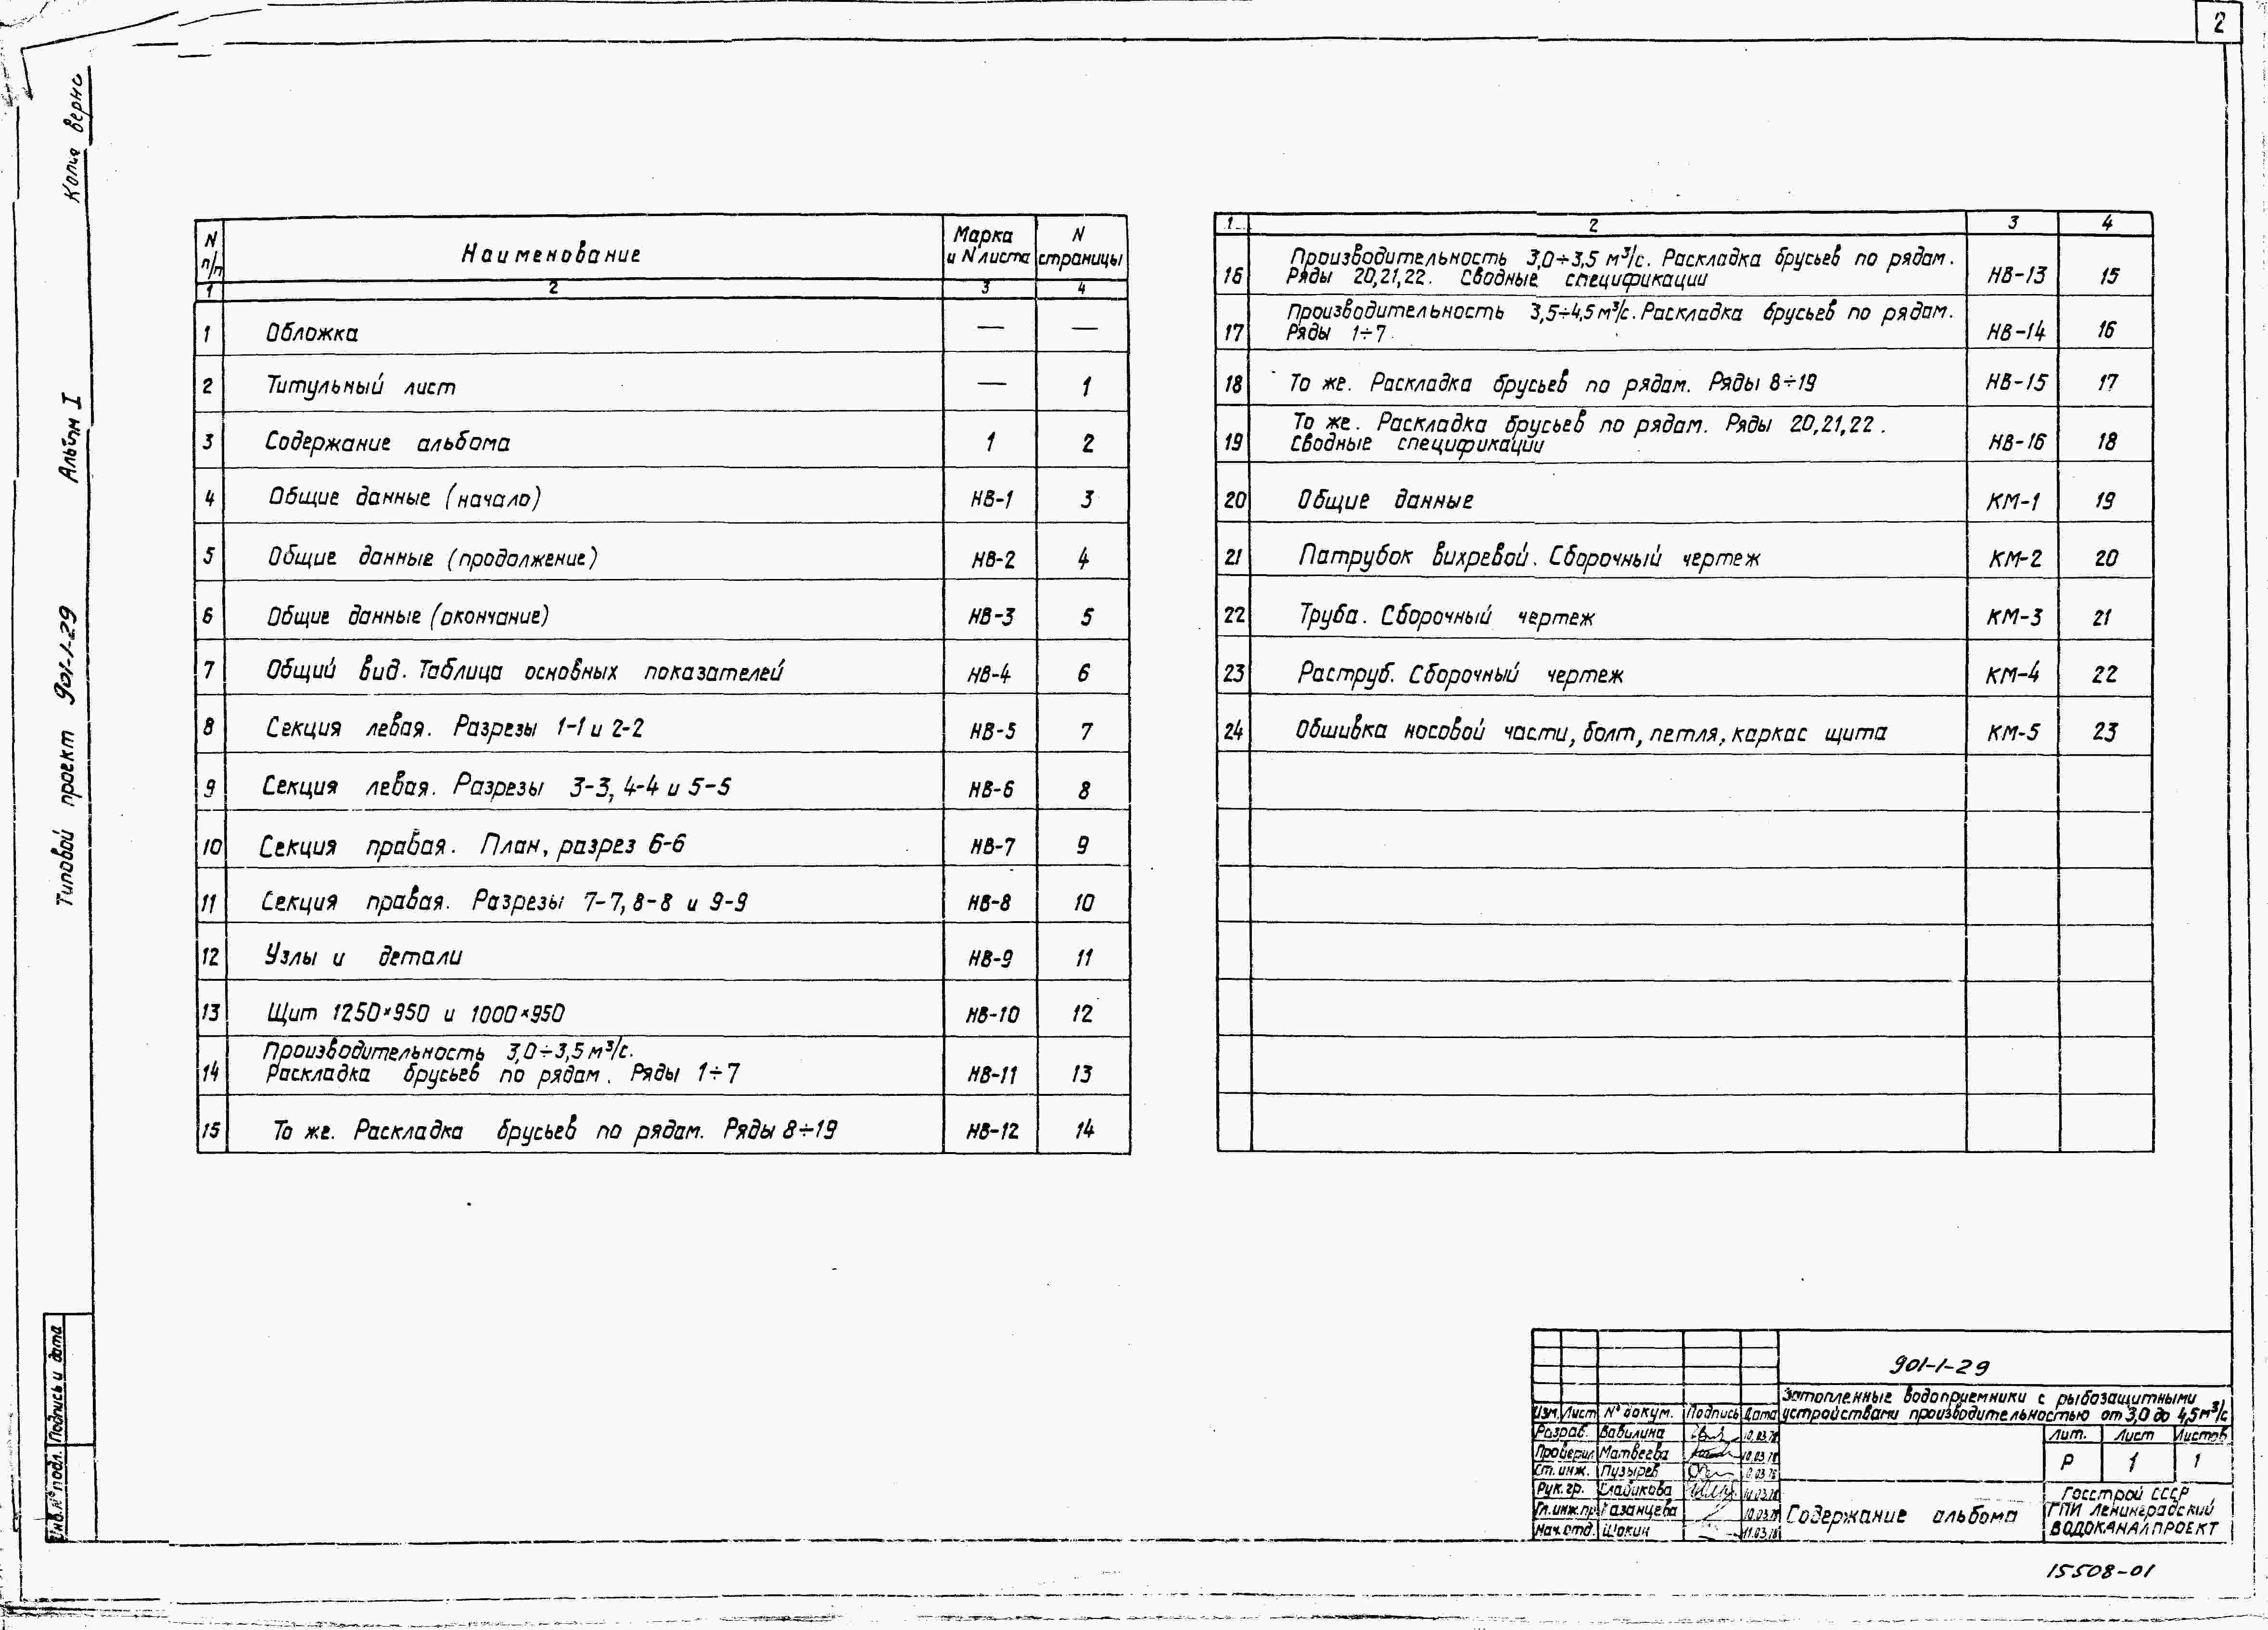 2
Копия верно
Альбом I
Типовой проект 901-1-29
N п/п Наименование Марка и N листа N страницы
1 2 3 4
1 Обложка — —
2 Титульный лист — 1
3 Содержание альбома 1 2
4 Общие данные (начало) НВ-1 3
5 Общие данные (продолжение) НВ-2 4
6 Общие данные (окончание) НВ-3 5
7 Общий вид. Таблица основных показателей НВ-4 6
8 Секция левая. Разрезы 1-1 и 2-2 НВ-5 7
9 Секция левая. Разрезы 3-3, 4-4 и 5-5 НВ-6 8
10 Секция правая. План, разрез 6-6 НВ-7 9
11 Секция правая. Разрезы 7-7, 8-8 и 9-9 НВ-8 10
12 Узлы и детали НВ-9 11
13 Щит 1250×950 и 1000×950 НВ-10 12
Производительность 3,0÷3,5 м³/с.
14 Раскладка брусьев по рядам. Ряды 1÷7 НВ-11 13
15 То же. Раскладка брусьев по рядам. Ряды 8÷19 НВ-12 14
1 2 3 4
Производительность 3,0÷3,5 м³/с. Раскладка брусьев по рядам.
16 Ряды 20,21,22. Сводные спецификации НВ-13 15
Производительность 3,5÷4,5 м³/с. Раскладка брусьев по рядам.
17 Ряды 1÷7 НВ-14 16
18 То же. Раскладка брусьев по рядам. Ряды 8÷19 НВ-15 17
То же. Раскладка брусьев по рядам. Ряды 20,21,22.
19 Сводные спецификации НВ-16 18
20 Общие данные КМ-1 19
21 Патрубок вихревой. Сборочный чертеж КМ-2 20
22 Труба. Сборочный чертеж КМ-3 21
23 Раструб. Сборочный чертеж КМ-4 22
24 Обшивка носовой части, болт, петля, каркас щита КМ-5 23
Инв.№ подл. Подпись и дата
901-1-29
Затопленные водоприемники с рыбозащитными
устройствами производительностью от 3,0 до 4,5 м³/с
Изм. Лист № докум. Подпись Дата
Разраб. Вавилина 10.03.78
Проверил Матвеева 10.03.78
Ст. инж. Пузырев
Рук. гр. Сладикова
Гл. инж. пр. Казанцева 10.03.78
Нач. отд. Шокин 11.03.78
Лит. Лист Листов
Р 1 1
Содержание альбома
Госстрой СССР
ГПИ Ленинградский
ВОДОКАНАЛПРОЕКТ
15508-01